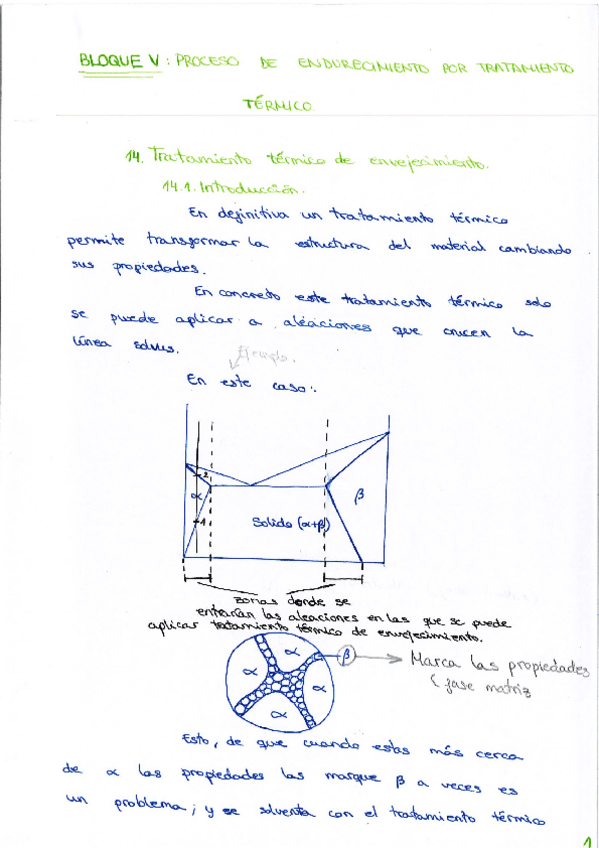 BLOQUE V: PROCESO DE ENDURECIMIENTO POR TRATAMIENTO
TÉRMICO
14. Tratamiento térmico de envejecimiento.
14.1. Introducción.
En definitiva un tratamiento térmico
permite transformar la estructura del material cambiando
sus propiedades.
En concreto este tratamiento térmico solo
se puede aplicar a aleaciones que crucen la
línea solvus.
Ejemplo.
En este caso:
2
α
β
1
Solido (α+β)
zonas donde se
entrarían las aleaciones en las que se puede
aplicar tratamiento térmico de envejecimiento.
α
β
Marca las propiedades
α
α
(fase matriz
α
Esto, de que cuando estas más cerca
de α las propiedades las marque β a veces es
un problema; y se solventa con el tratamiento térmico
1